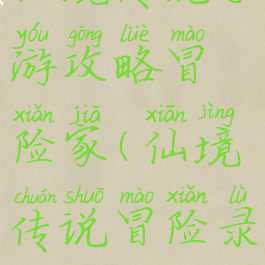 yóu gōng lüè mào
游攻略冒
xiǎn jiā xiān jìng
险家(仙境
chuán shuō mào xiǎn lù
传说冒险录